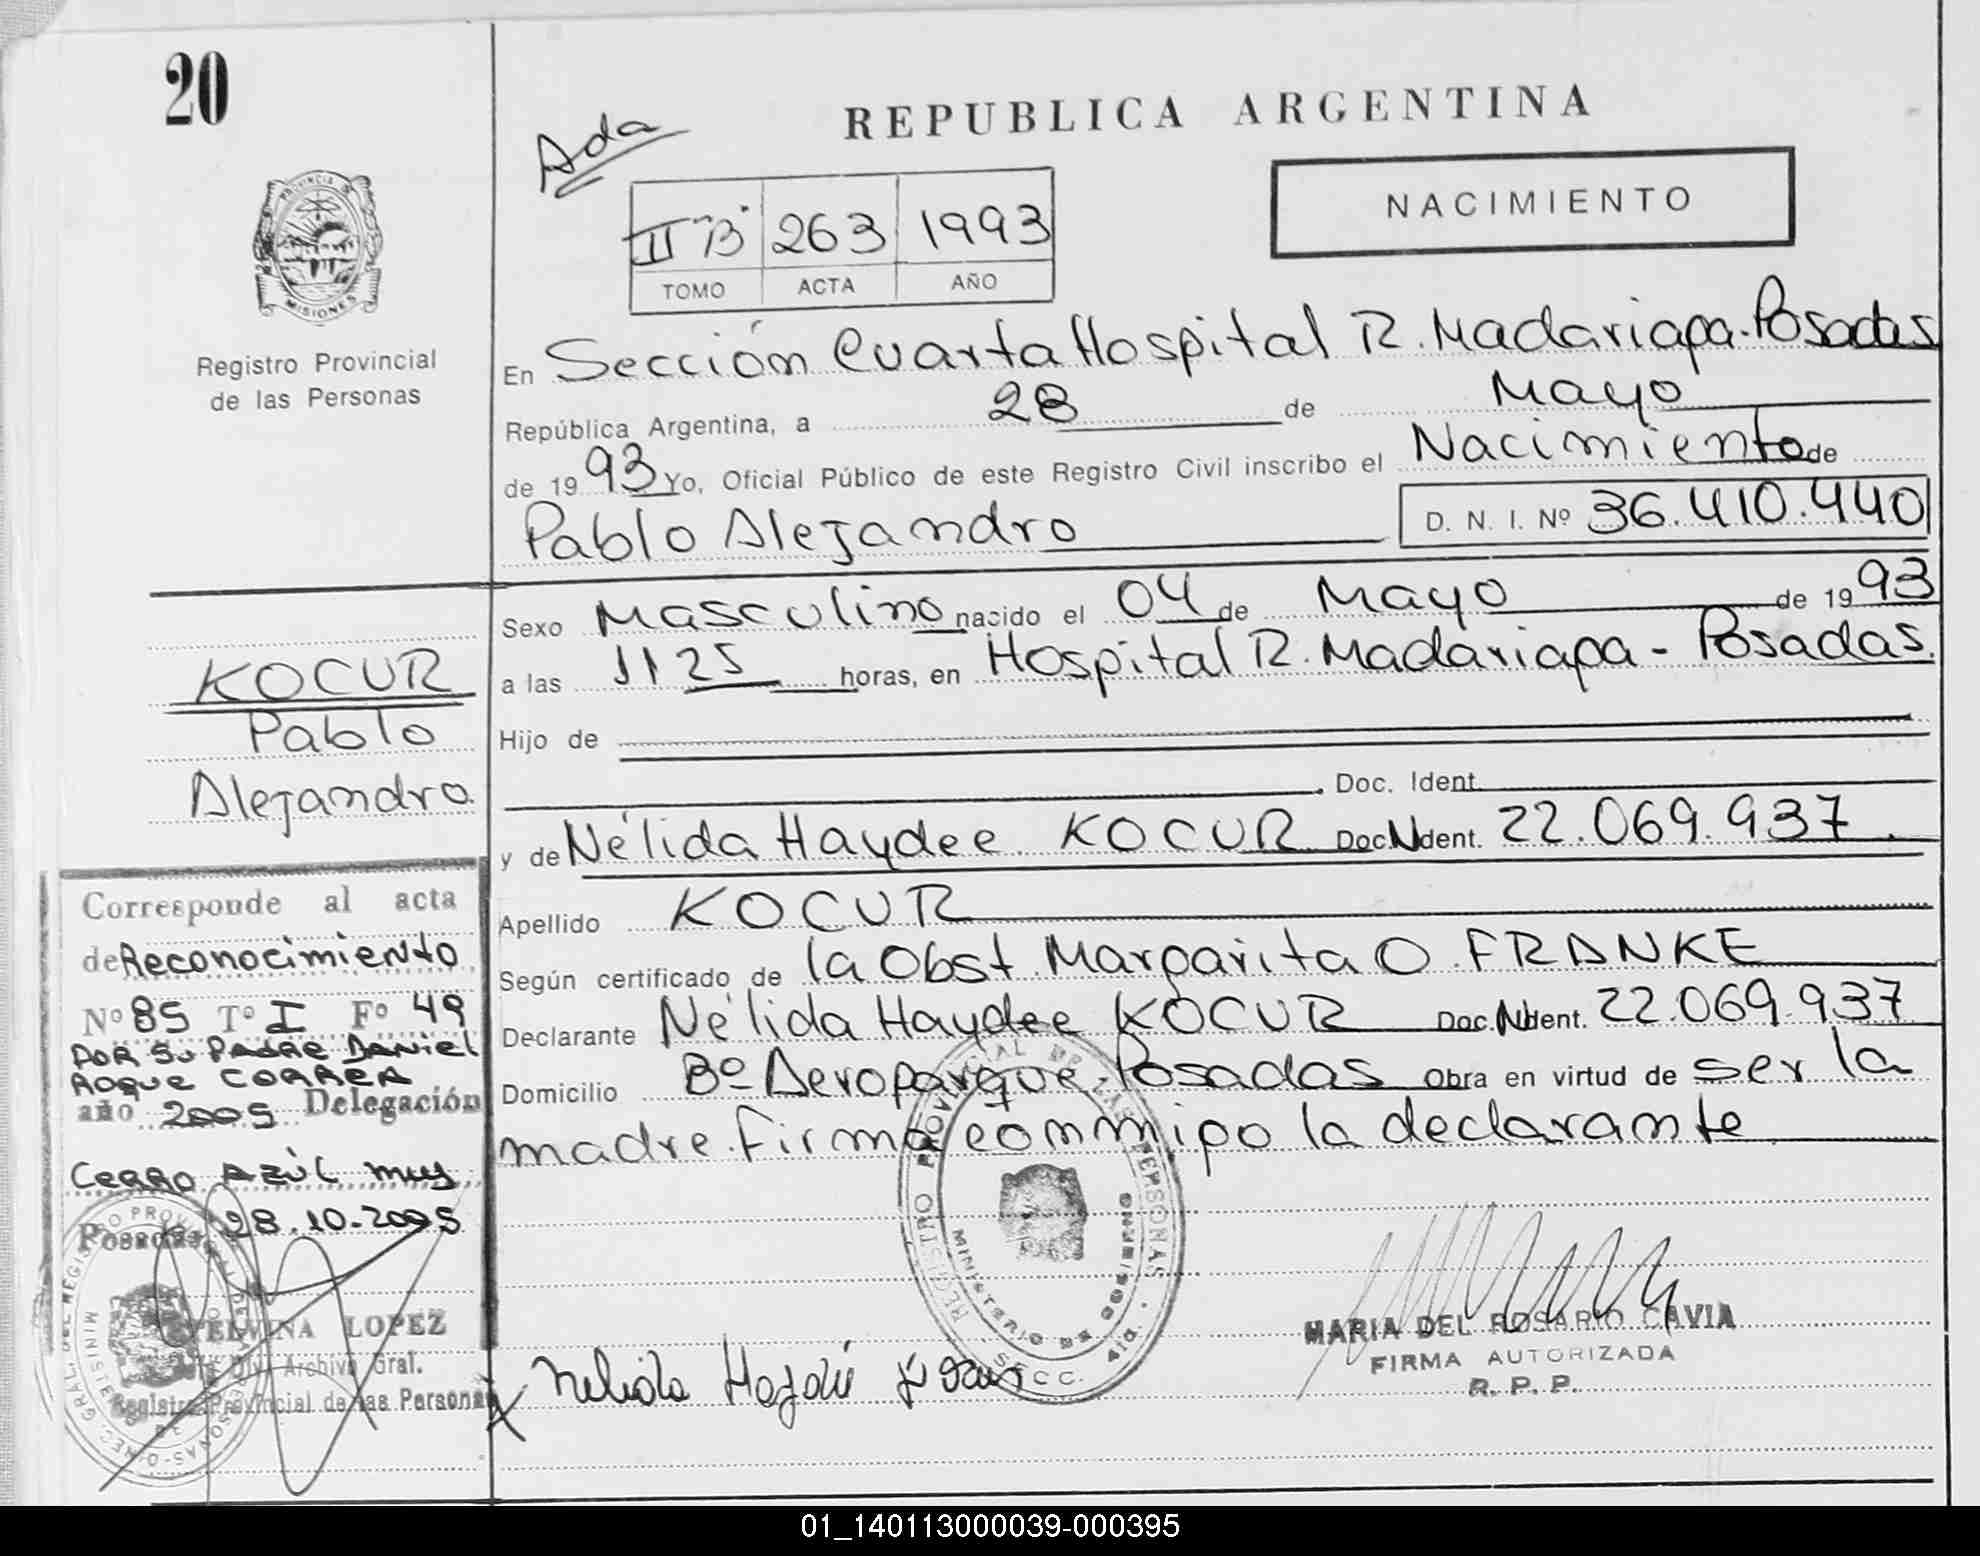 20
REPUBLICA ARGENTINA
Ada
NACIMIENTO
II "B" 263 1993
TOMO ACTA AÑO
PROVINCIA DE MISIONES
Registro Provincial
de las Personas
En Sección Cuarta Hospital R. Madariaga. Posadas
República Argentina, a 28 de Mayo
de 1993 Yo, Oficial Público de este Registro Civil inscribo el Nacimiento de
Pablo Alejandro D. N. I. Nº 36.410.440
Sexo Masculino nacido el 04 de Mayo de 1993
a las 1125 horas, en Hospital R. Madariaga - Posadas.
Hijo de
Doc. Ident.
y de Nélida Haydee KOCUR Doc. N Ident. 22.069.937
Apellido KOCUR
Según certificado de la Obst Margarita O. FRANKE
Declarante Nélida Haydee KOCUR Doc. N Ident. 22.069.937
Domicilio Bº Aeroparque, Posadas Obra en virtud de ser la
madre. Firma conmigo la declarante
KOCUR
Pablo
Alejandro
Corresponde al acta
de Reconocimiento
Nº 85 Tº I Fº 49
POR SU PADRE DANIEL
ROQUE CORREA
año 2005 Delegación
CERRO AZÚL mns
Posadas, 28.10.2005
TELVINA LOPEZ
Div. Archivo Gral.
Registro Provincial de las Personas
REGISTRO PROVINCIAL DE LAS PERSONAS
MINISTERIO DE GOBIERNO
SECC. 4ta.
Nelida Haydé
MARIA DEL ROSARIO CAVIA
FIRMA AUTORIZADA
R. P. P.
01_140113000039-000395